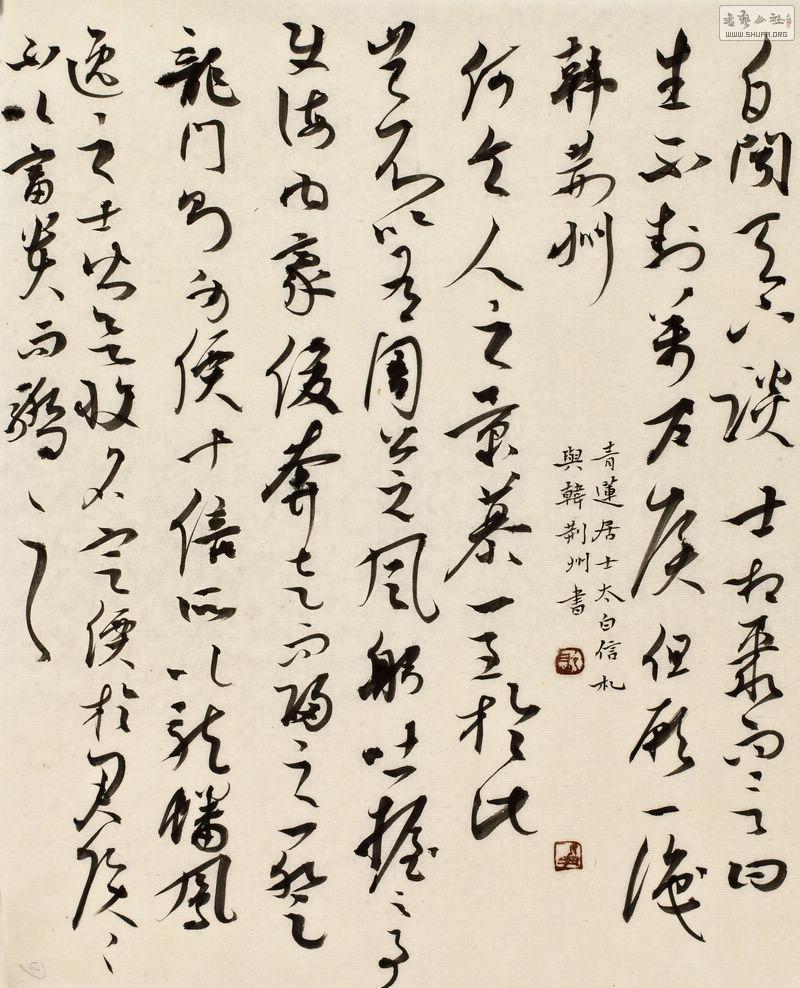 白聞天下談士相聚而言曰
生不封萬户侯但願一識
韓荊州
青蓮居士太白信札
與韓荊州書
何令人之景慕一至於此
豈不以有周公之風躬吐握之事
使海內豪俊奔走而歸之一登
龍門則聲價十倍所以龍蟠鳳
逸之士皆欲收名定價於君侯〻
不以富貴而驕之
书艺公社
WWW.SHUFA.ORG